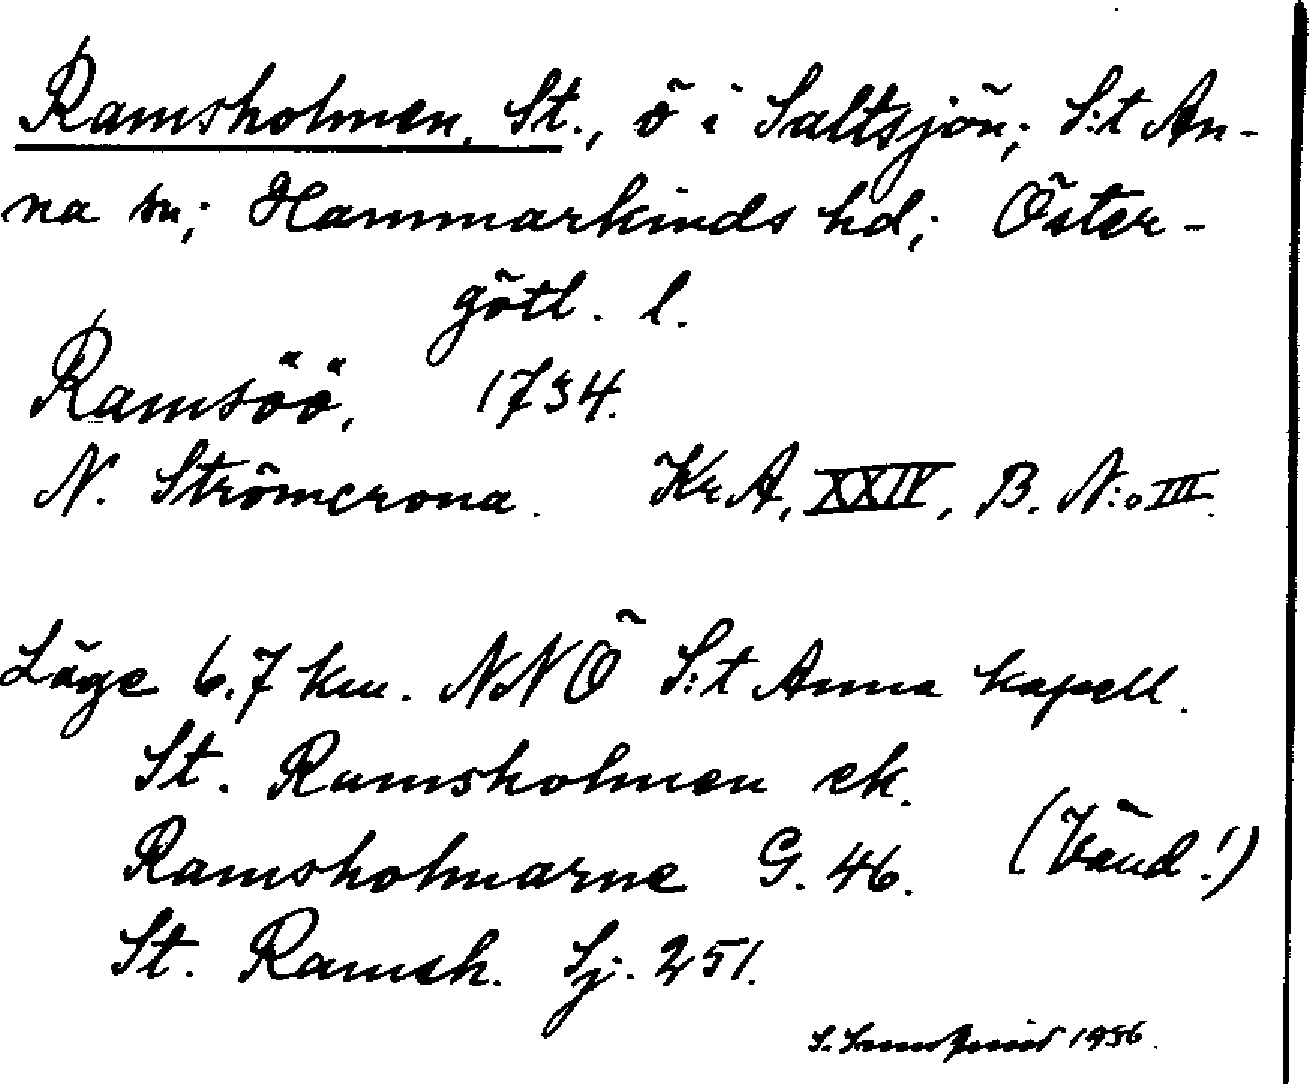 Ramsholmen, St., ö i Saltsjön; S:t An-
na sn; Hammarkinds hd; Öster-
götl. l.
Ramsöö, 1734.
N. Strömcrona. KrA, XXIV, B. N:o III.
Läge 6.7 km. NNÖ S:t Anna kapell.
St. Ramsholmen ek.
Ramsholmarne G. 46. (Vänd!)
St. Ramsh. Sj. 251.
S. 1936.